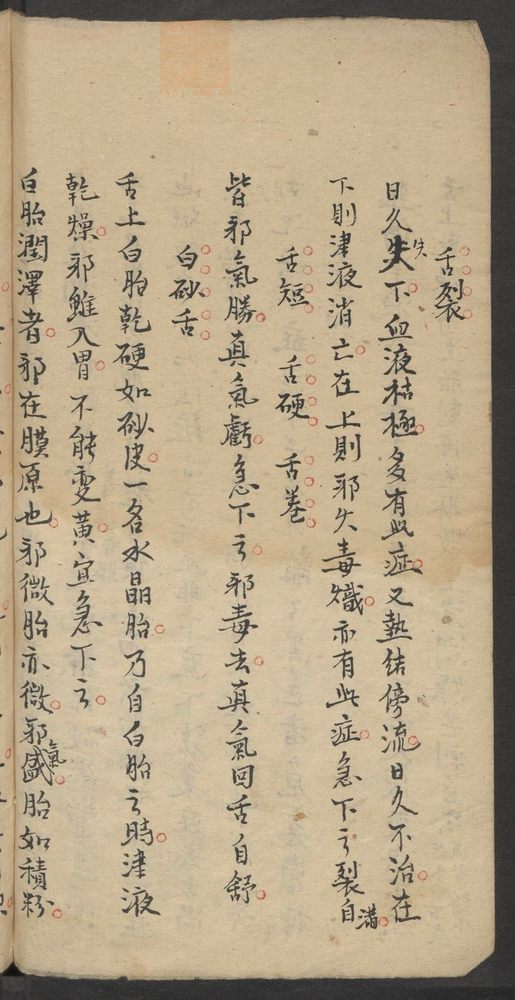 舌裂
日久失下血液枯極多有此症又熱結傍流日久不治在
下則津液消亡在上則邪火毒熾亦有此症急下之裂自滿
舌短 舌硬 舌卷
皆邪氣勝真氣虧急下之邪毒去真氣回舌自舒
白砂舌
舌上白胎乾硬如砂皮一名水晶胎乃自白胎之時津液
乾燥邪雖入胃不能變黃宜急下之
白胎潤澤者邪在膜原也邪微胎亦微邪氣盛胎如積粉